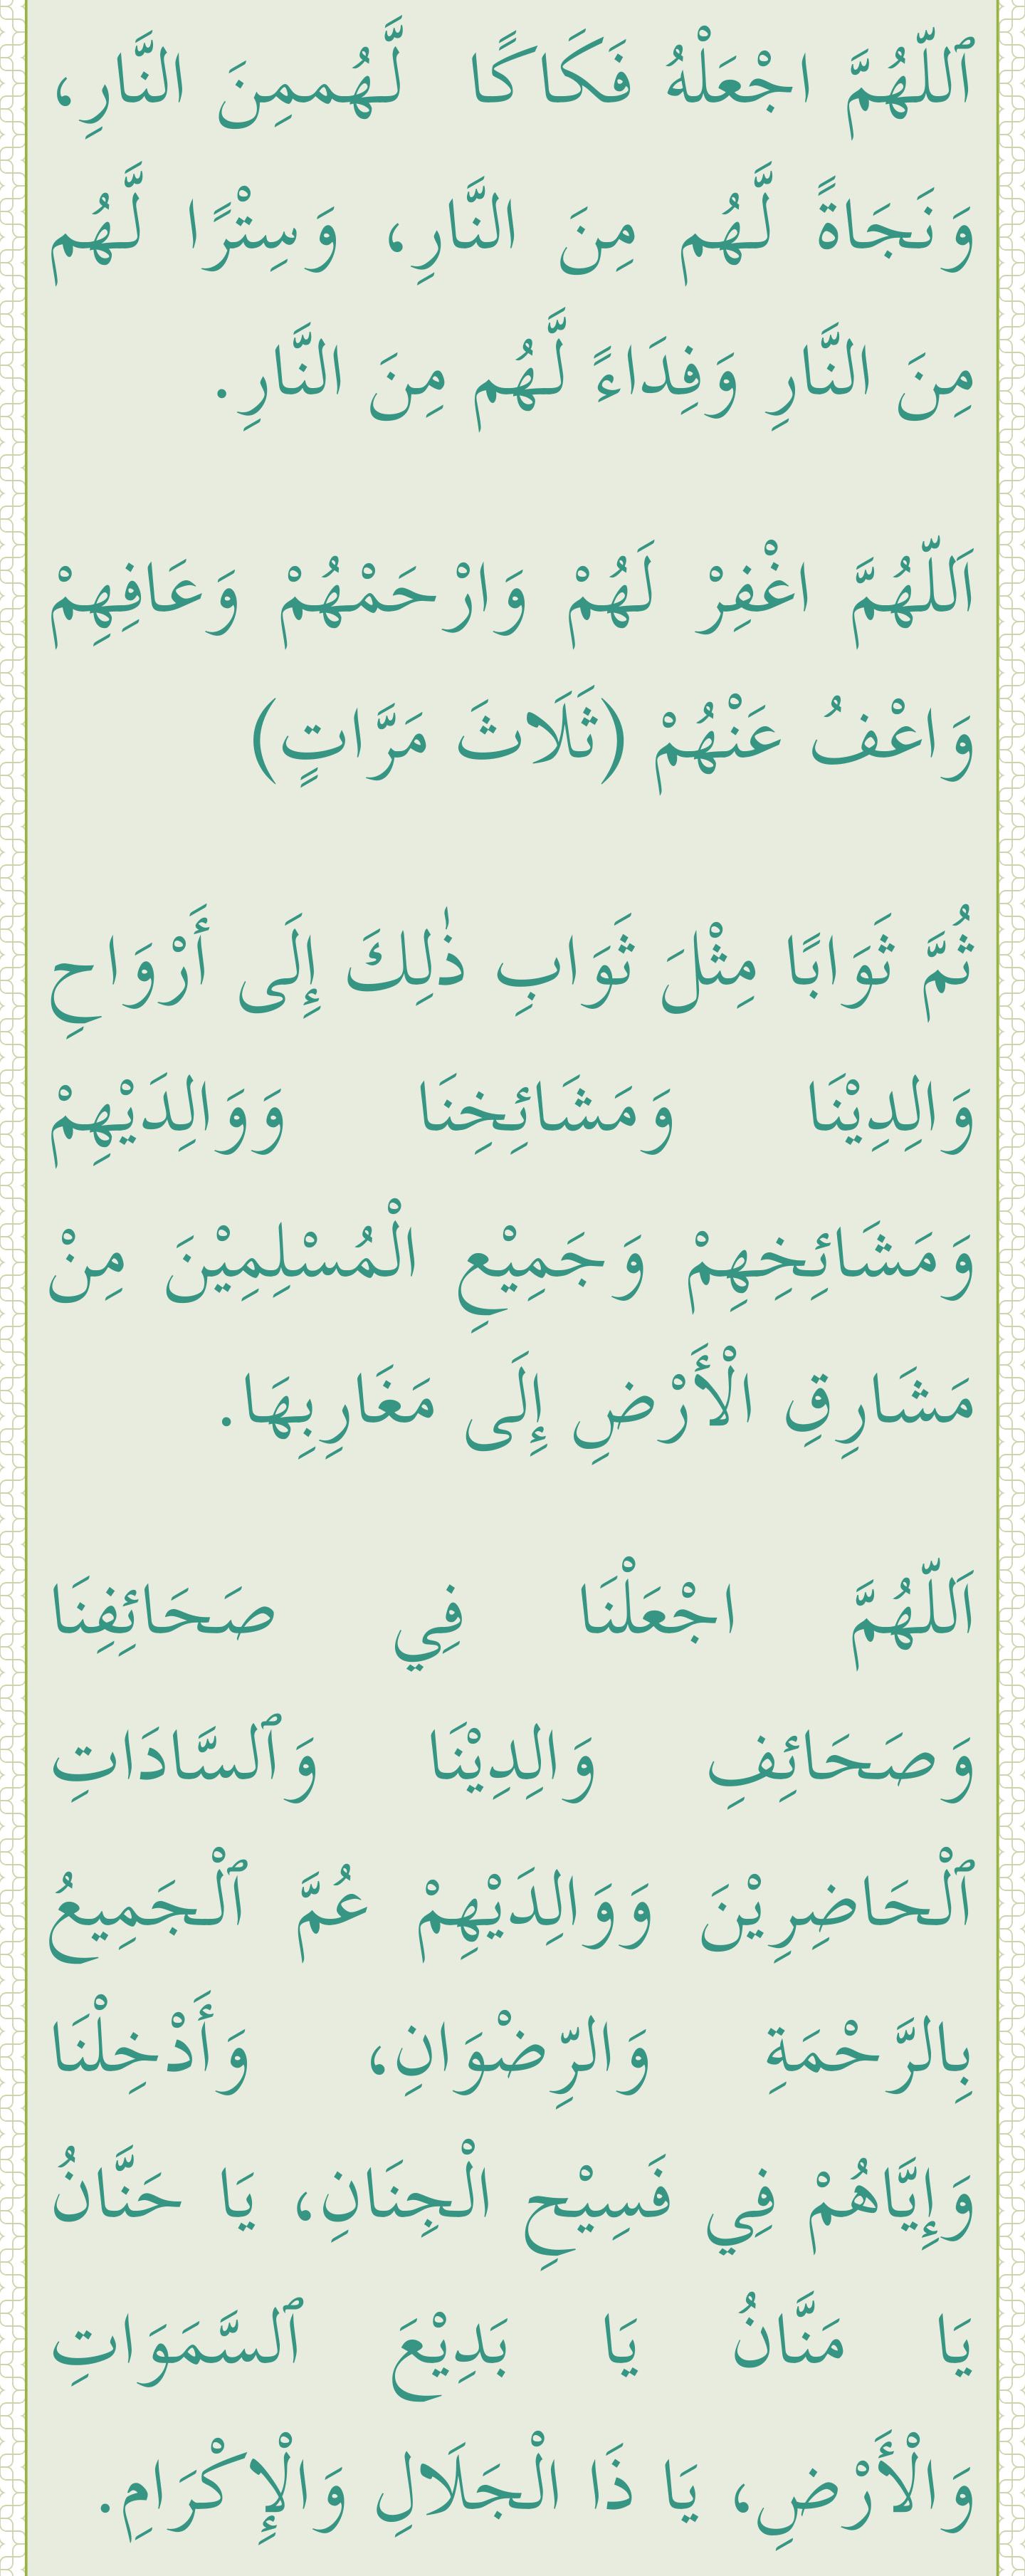 ٱللّهُمَّ اجْعَلْهُ فَكَاكًا لَّهُممِنَ النَّارِ،
وَنَجَاةً لَّهُم مِنَ النَّارِ، وَسِتْرًا لَّهُم
مِنَ النَّارِ وَفِدَاءً لَّهُم مِنَ النَّارِ.
اَللّهُمَّ اغْفِرْ لَهُمْ وَارْحَمْهُمْ وَعَافِهِمْ
وَاعْفُ عَنْهُمْ (ثَلَاثَ مَرَّاتٍ)
ثُمَّ ثَوَابًا مِثْلَ ثَوَابِ ذٰلِكَ إِلَى أَرْوَاحِ
وَالِدِيْنَا وَمَشَائِخِنَا وَوَالِدَيْهِمْ
وَمَشَائِخِهِمْ وَجَمِيْعِ الْمُسْلِمِيْنَ مِنْ
مَشَارِقِ الْأَرْضِ إِلَى مَغَارِبِهَا.
اَللّهُمَّ اجْعَلْنَا فِي صَحَائِفِنَا
وَصَحَائِفِ وَالِدِيْنَا وَٱلسَّادَاتِ
ٱلْحَاضِرِيْنَ وَوَالِدَيْهِمْ عُمَّ ٱلْجَمِيعُ
بِالرَّحْمَةِ وَالرِّضْوَانِ، وَأَدْخِلْنَا
وَإِيَّاهُمْ فِي فَسِيْحِ الْجِنَانِ، يَا حَنَّانُ
يَا مَنَّانُ يَا بَدِيْعَ ٱلسَّمَوَاتِ
وَالْأَرْضِ، يَا ذَا الْجَلَالِ وَالْإِكْرَامِ.